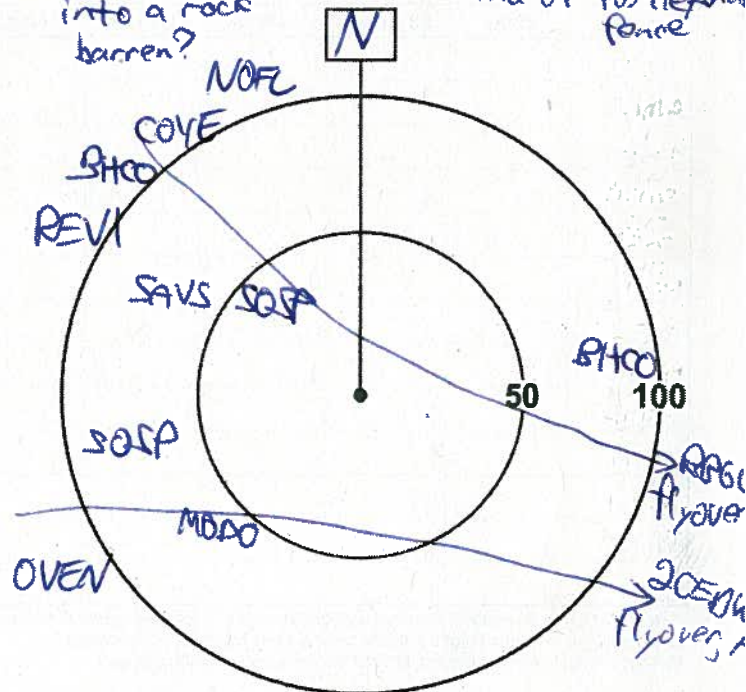 into a rock
barren?
fence
N
NOFL
COYE
BHCO
REVI
SAVS SOSP
BHCO
50 100
SOSP
flyover
MODO
OVEN
2CEDW
flyover,